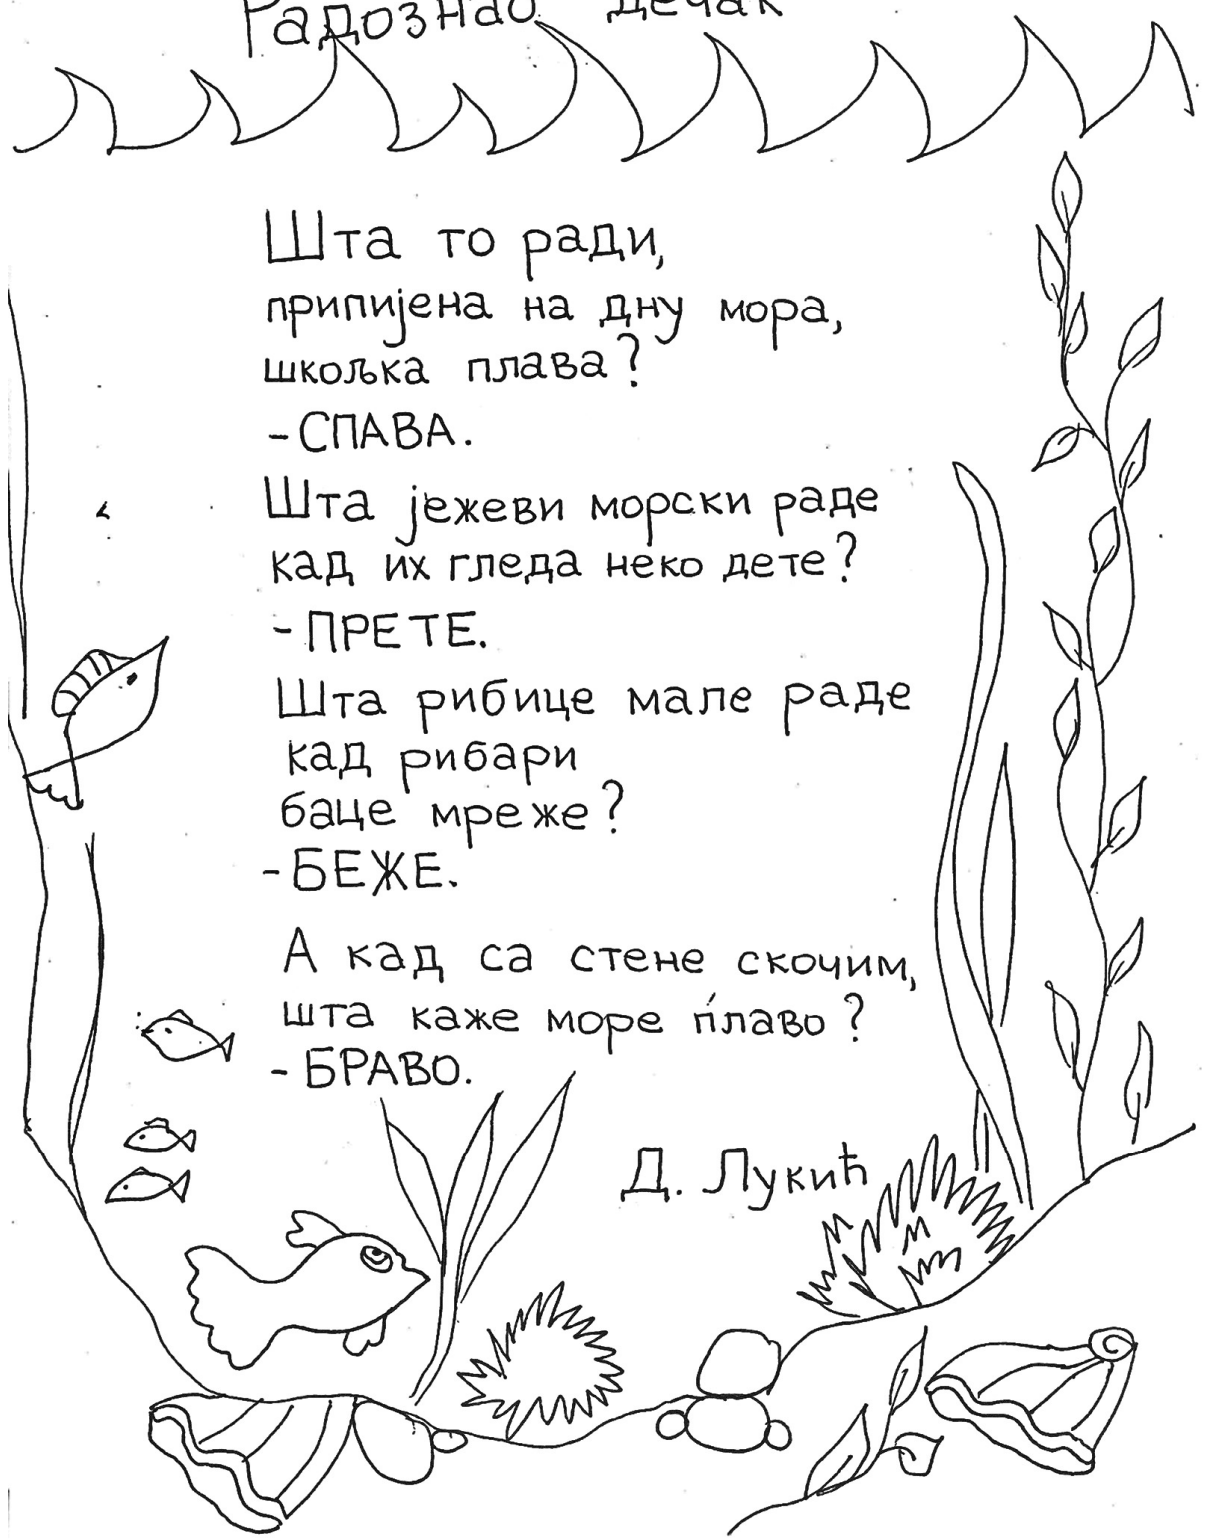 Радознао дечак
Шта то ради,
припијена на дну мора,
шкољка плава?
-СПАВА.
Шта јежеви морски раде
кад их гледа неко дете?
-ПРЕТЕ.
Шта рибице мале раде
кад рибари
баце мреже?
-БЕЖЕ.
А кад са стене скочим,
шта каже море плаво?
-БРАВО.
Д. Лукић